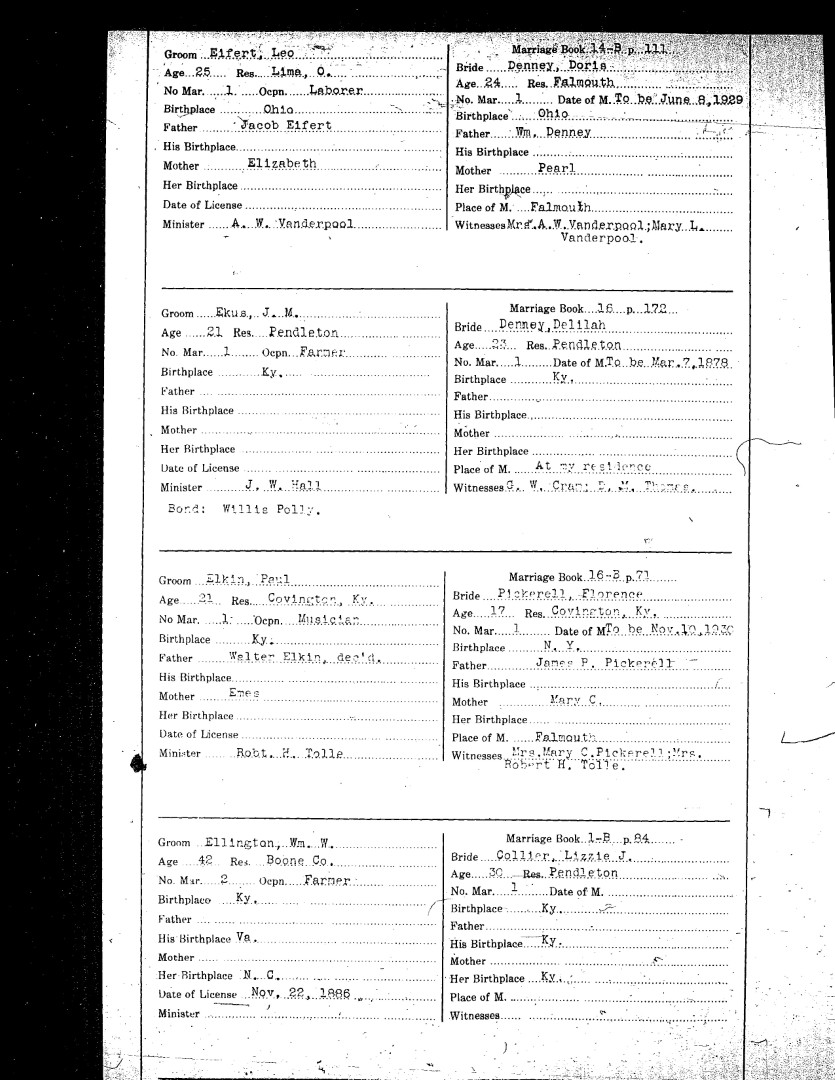 Groom Eifert, Leo
Age 25 Res. Lima, O.
No Mar. 1 Ocpn. Laborer
Birthplace Ohio
Father Jacob Eifert
His Birthplace
Mother Elizabeth
Her Birthplace
Date of License
Minister A. W. Vanderpool
Marriage Book 14-B p. 111
Bride Denney, Doris
Age 24 Res. Falmouth
No. Mar. 1 Date of M. To be June 8, 1929
Birthplace Ohio
Father Wm. Denney
His Birthplace
Mother Pearl
Her Birthplace
Place of M. Falmouth
Witnesses Mrs. A. W. Vanderpool; Mary L.
Vanderpool.
Groom Ekus, J. M.
Age 21 Res. Pendleton
No. Mar. 1 Ocpn. Farmer
Birthplace Ky.
Father
His Birthplace
Mother
Her Birthplace
Date of License
Minister J. W. Hall
Bond: Willis Polly.
Marriage Book 16 p. 172
Bride Denney, Delilah
Age 23 Res. Pendleton
No. Mar. 1 Date of M. To be Mar. 7, 1878
Birthplace Ky.
Father
His Birthplace
Mother
Her Birthplace
Place of M. At my residence
Witnesses G. W. Cram; M. Thomas.
Groom Elkin, Paul
Age 21 Res. Covington, Ky.
No Mar. 1 Ocpn. Musician
Birthplace Ky.
Father Walter Elkin, dec'd.
His Birthplace
Mother Emes
Her Birthplace
Date of License
Minister Robt. H. Tolle
Marriage Book 16-B p. 71
Bride Pickerell, Florence
Age 17 Res. Covington, Ky.
No. Mar. 1 Date of M. To be Nov. 10, 1930
Birthplace N. Y.
Father James P. Pickerell
His Birthplace
Mother Mary C.
Her Birthplace
Place of M. Falmouth
Witnesses Mrs. Mary C. Pickerell; Mrs.
Robert H. Tolle.
Groom Ellington, Wm. W.
Age 42 Res. Boone Co.
No. Mar. 2 Ocpn. Farmer
Birthplace Ky.
Father
His Birthplace Va.
Mother
Her Birthplace N. C.
Date of License Nov. 22, 1886
Minister
Marriage Book 1-B p. 84
Bride Collier, Lizzie J.
Age 30 Res. Pendleton
No. Mar. 1 Date of M.
Birthplace Ky.
Father
His Birthplace Ky.
Mother
Her Birthplace Ky.
Place of M.
Witnesses